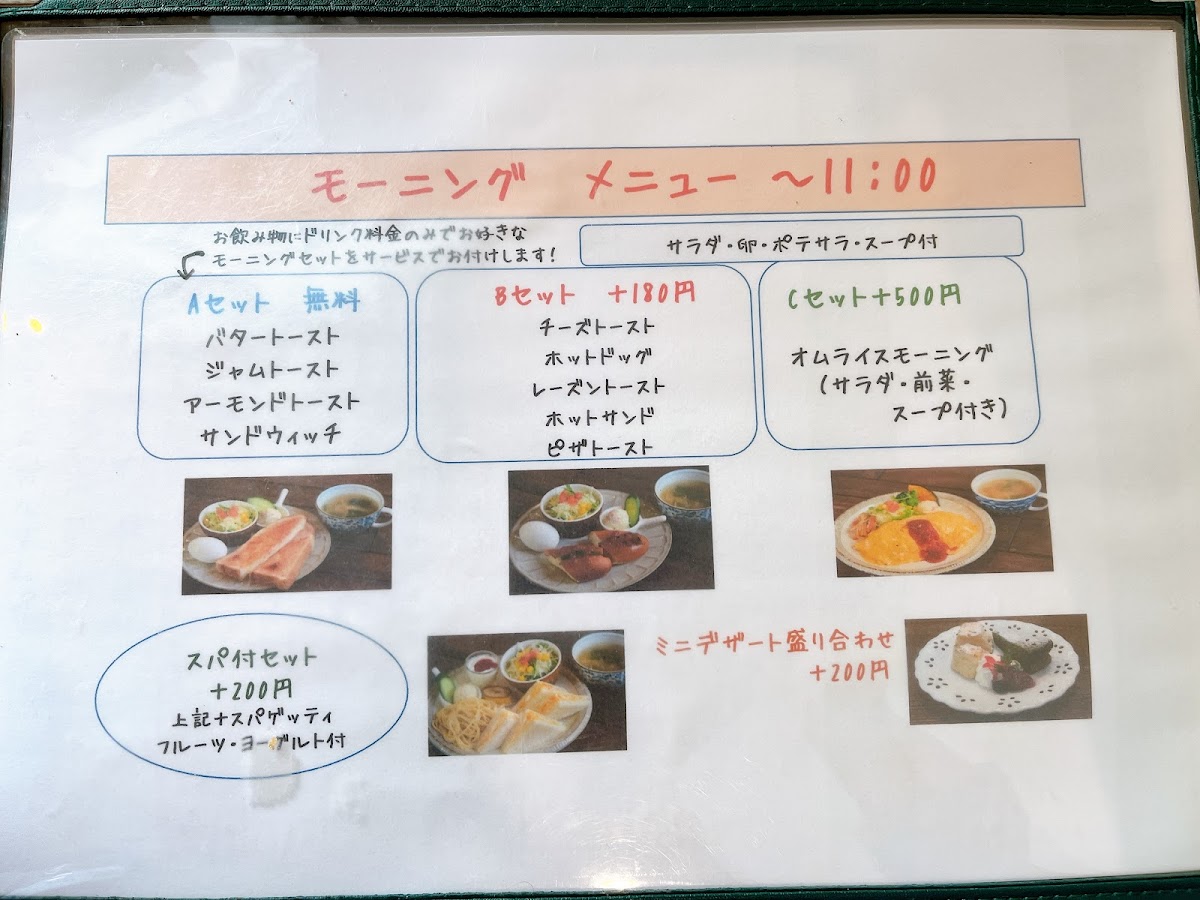 モーニング メニュー ～11:00
お飲み物にドリンク料金のみでお好きな
モーニングセットをサービスでお付けします!
サラダ・卵・ポテサラ・スープ付
Aセット 無料
バタートースト
ジャムトースト
アーモンドトースト
サンドウィッチ
Bセット +180円
チーズトースト
ホットドッグ
レーズントースト
ホットサンド
ピザトースト
Cセット+500円
オムライスモーニング
(サラダ・前菜・
スープ付き)
スパ付セット
+200円
上記+スパゲッティ
フルーツ・ヨーグルト付
ミニデザート盛り合わせ
+200円